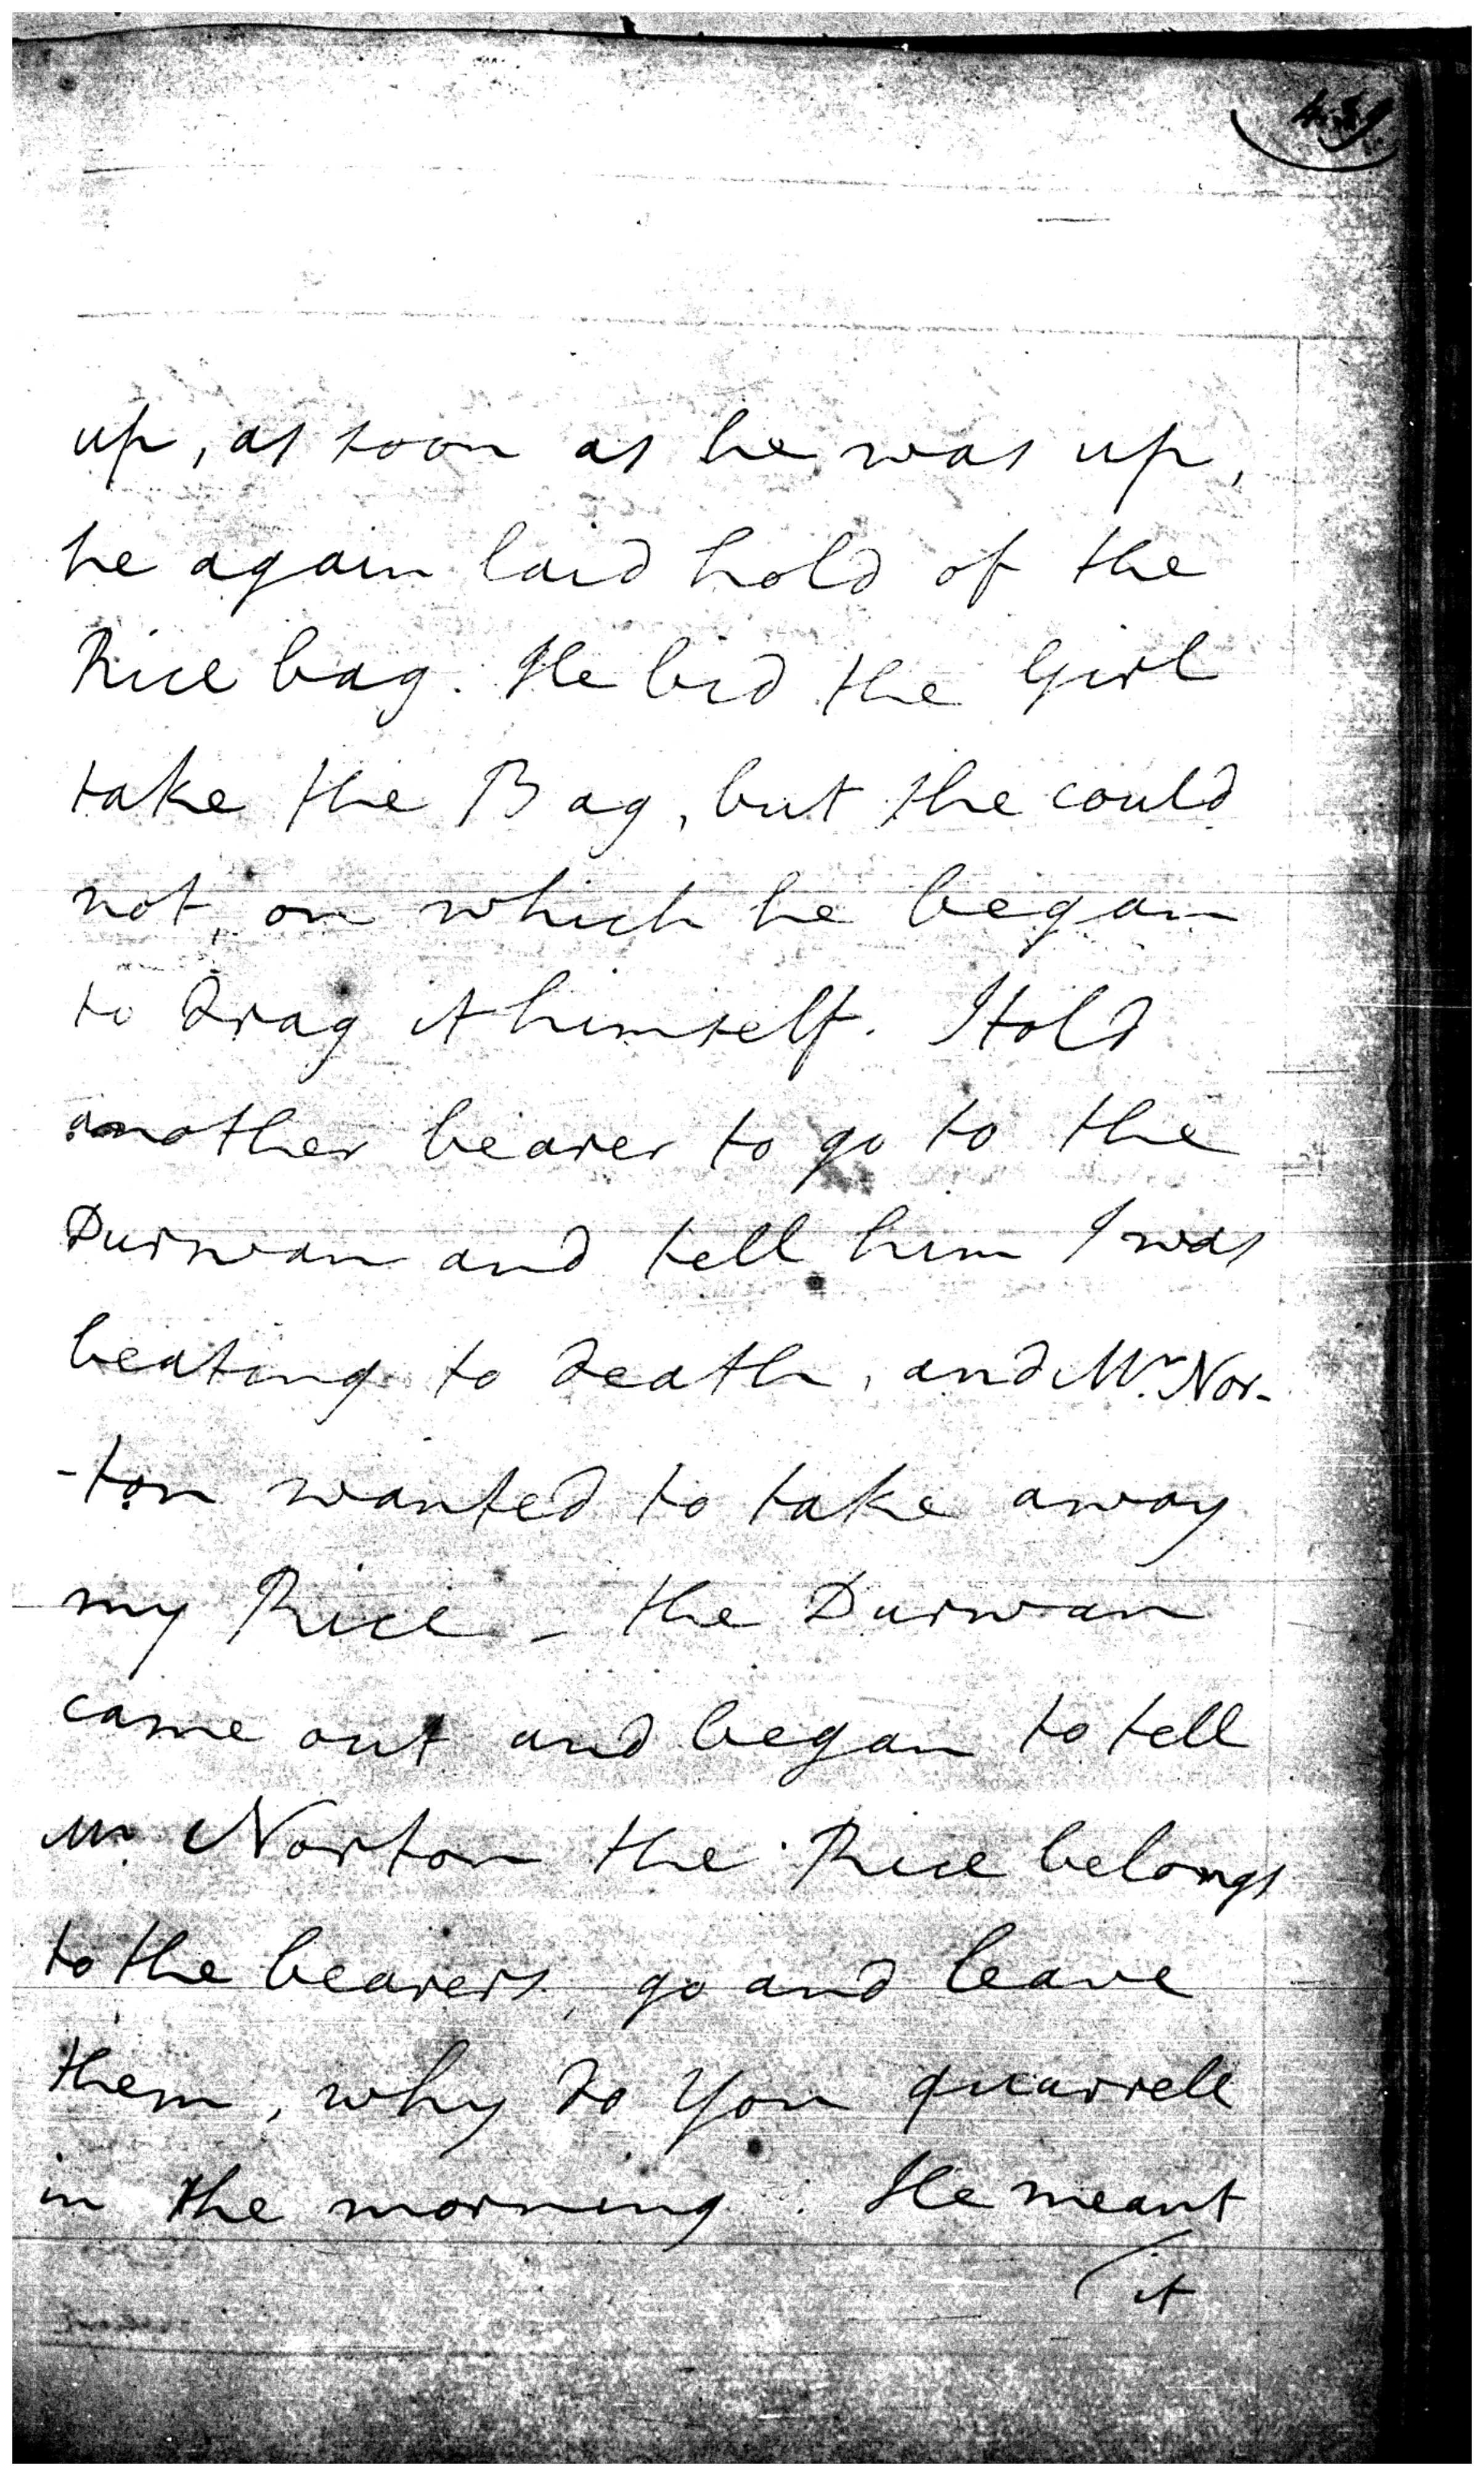 up, as soon as he was up,
he again laid hold of the
Rice bag. He bid the Girl
take the Bag, but she could
not, on which he began
to drag it himself. I told
another bearer to go to the
Durwan and tell him I was
beating to death, and Mr. Nor-
-ton wanted to take away
my Rice - the Durwan
came out and began to tell
Mr. Norton the Rice belongs
to the bearers, go and leave
them, why do you quarrell
in the morning. He meant
it